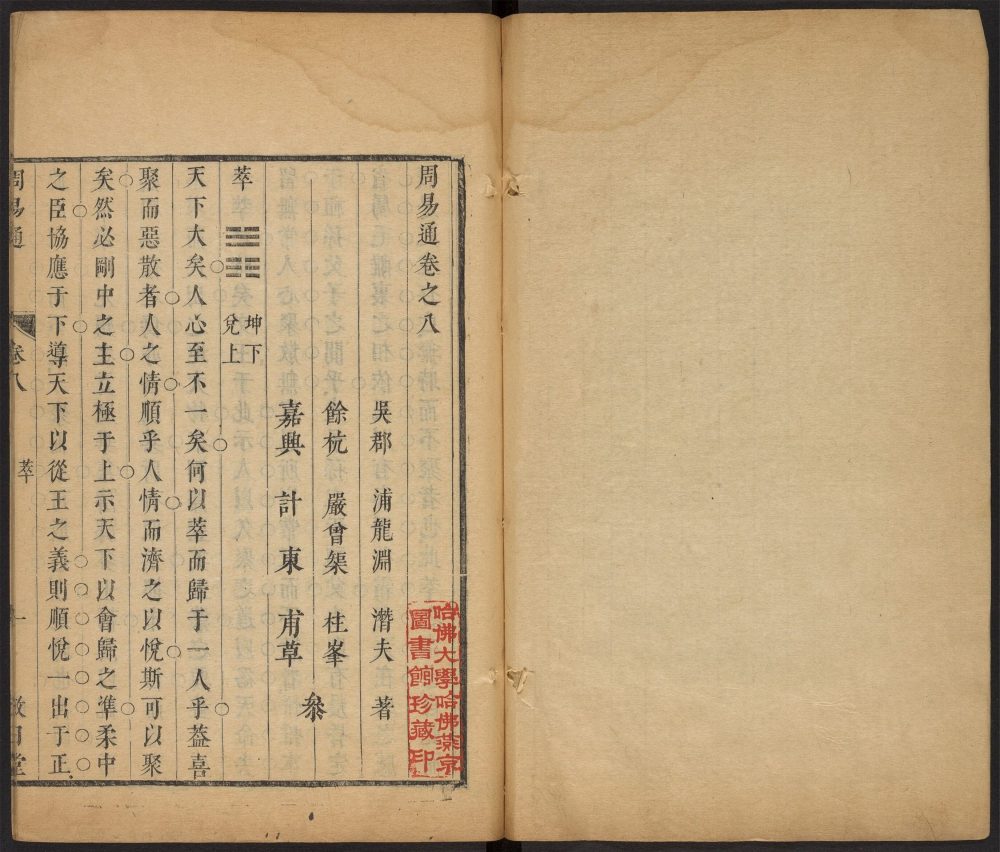 周易通卷之八
吳郡 浦龍淵 潛夫 著
餘杭 嚴曾榘 柱峯
嘉興 計東 甫草 叅
萃 坤下
兌上
天下大矣人心至不一矣何以萃而歸于一人乎葢喜
聚而惡散者人之情順乎人情而濟之以悅斯可以聚
矣然必剛中之主立極于上示天下以會歸之準柔中
之臣協應于下導天下以從王之義則順悅一出于正
周易通 卷八 萃 一
哈佛大學哈佛燕京
圖書館珍藏印